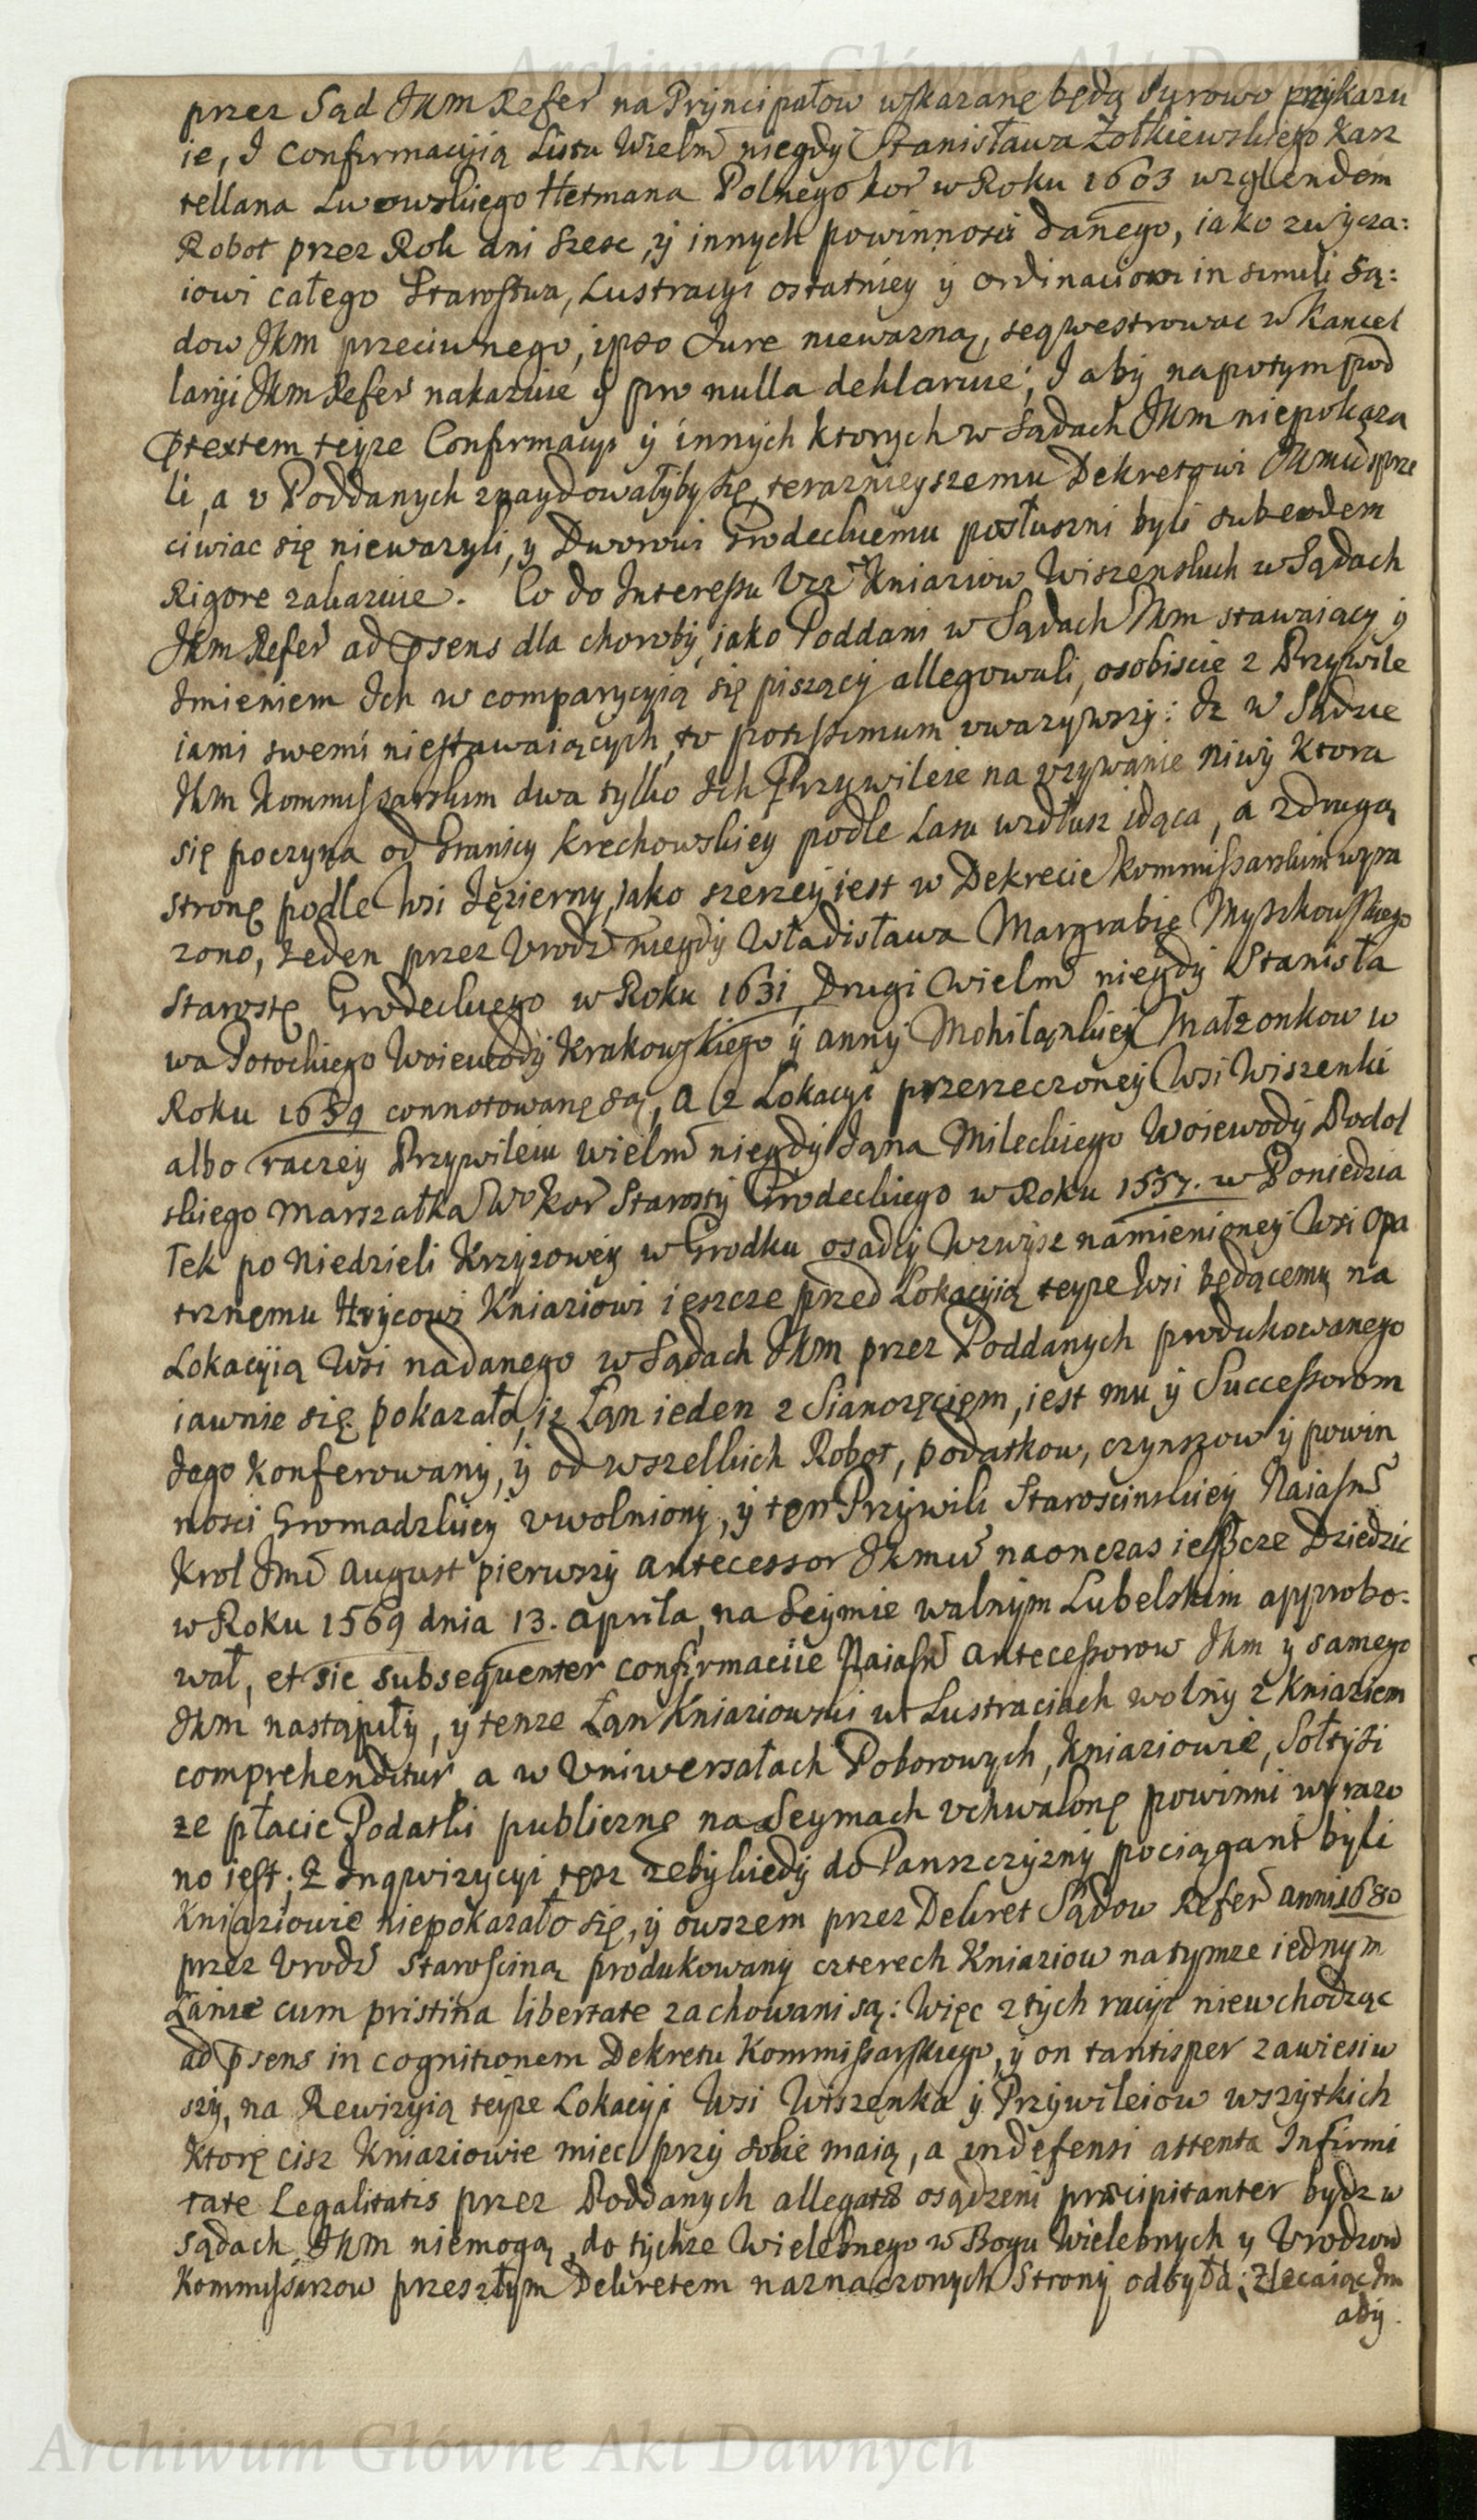 Archiwum Główne Akt Dawnych
przez Sąd JKM Refer na Pryncipałow wskazanę będą surowo przykazu
ie, J Confirmacyią Listu Wielm niegdy Stanisława Zołkiewskiego Kasz
tellana Lwowskiego Hetmana Polnego kor w Roku 1603 względem
Robot przez Rok dni szesc, y innych powinnosci danego, iako zwycza:
iowi całego Starostwa, Lustracyi ostatniey y ordinaciom in simili Są:
dow JKM przeciwnego, ipso Jure niewazną, seqwestrowac w Kancel
laryi JKM Refer nakazuie y pro nulla deklaruie; J aby napotym pod
Ptextem teyze Confirmacyi y innych ktorych w Sądach JKM niepokaza
li, a v Poddanych znaydowałyby się, teraznieyszemu Dekretowi JKMci sprze
ciwiac się niewazyli, y Dworowi Grodeckiemu posłuszni byli sub eodem
Rigore zakazuie. Co do Interessu Vcz Kniaziow Wiszenskich w Sądach
JKM Refer ad psens dla choroby, iako Poddani w Sądach JKM stawaiący y
Jmieniem Jch w comparycyią się piszący allegowali, osobiscie z Przywile
iami swemi niestawaiących, to potissimum vwazywszy: Jz w Sądzie
JKM Kommissarskim dwa tylko Jch Przywileie na vzywanie niwy ktora
się poczyna od Granicy Krechowskiey podle Lasu wzdłusz idąca, a z drugą
stronę podle Wsi Jęzierny, iako szerzey iest w Dekrecie Kommissarskim wyra
zono, Jeden przez Vrodz niegdy Władisława Margrabię Myszkowskiego
Starostę Grodeckiego w Roku 1631, Drugi Wielm niegdy Stanisła
wa Potockiego Woiewody Krakowskiego y Anny Mohiląnkiey Małzonkow w
Roku 1659 connotowanę są, A z Lokacyi przerzeczoney Wsi Wiszenki
albo raczey Przywileiu Wielm niegdy Jana Mileckiego Woiewody Podol
skiego Marszałka W kor Starosty Grodeckiego w Roku 1557. w Poniedzia
łek po Niedzieli Krzyzowey w Grodku osadcy Wzwysz namienioney Wsi Opa
trznemu Hrycowi Kniaziowi ieszcze przed Lokacyią teyze Wsi będącemu na
Lokacyią Wsi nadanego w Sądach JKM przez Poddanych produkowanego
iawnie się pokazało, iz Łan ieden z Sianozęcięm, iest mu y Successorom
Jego konferowany, y od wszelkich Robot, podatkow, czynszow y powin
nosci Gromadzkiey vwolniony, y ten Przywili Staroscinskiey Naiasn
Krol Jmc August pierwszy antecessor JKMci naonczas ieszcze Dziedzic
w Roku 1569 dnia 13. Apriła, na Seymie walnym Lubelskim approbo:
wał, et sic subsequenter confirmaciie Naiasn Antecessorow JKM y samego
JKM nastąpiły, y tenze Łan Kniaziowski w Lustraciach wolny z Kniaziem
comprehenditur, a w Vniwersałach Poborowych, Kniaziowie, Sołtysi
ze płacic Podatki publicznę na Seymach vchwalonę powinni wyrazo
no iest; Z Inqwizycyi tesz zeby kiedy do Panszczyzny pociągani byli
Kniaziowie niepokazało się, y owszem przez Dekret Sądow Refer anni 1680
przez Vrodz Staroscinę produkowany czterech Kniaziow natymze iednym
Łanie cum pristina libertate zachowani są: Więc z tych racyi niewchodząc
ad psens in cognitionem Dekretu Kommissarskiego, y on tantisper zawiesiw
szy, na Rewizyią teyze Lokacyi Wsi Wiszenka y Przywileiow wszytkich
Ktorę cisz Kniaziowie miec przy sobie maią, a indefensi attenta Infirmi
tate Legalitatis przez Poddanych allegata osądzeni praecipitanter bydz w
Sądach JKM niemogą, do tychze Wielebnego w Bogu Wielebnych y Vrodzon
Kommissarzow przeszłym Dekretem naznaczonych Strony odsyła; Zlecaiąc Jm
aby.
Archiwum Główne Akt Dawnych